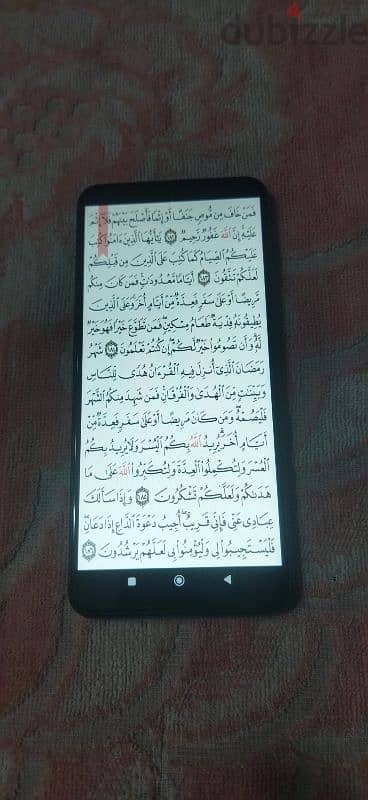 dubizzle
فَمَنْ خَافَ مِن مُّوصٍ جَنَفًا أَوْ إِثْمًا فَأَصْلَحَ بَيْنَهُمْ فَلَآ إِثْمَ
عَلَيْهِ إِنَّ اللَّهَ غَفُورٌ رَّحِيمٌ ١٨٢ يَٰٓأَيُّهَا الَّذِينَ ءَامَنُوا كُتِبَ
عَلَيْكُمُ الصِّيَامُ كَمَا كُتِبَ عَلَى الَّذِينَ مِن قَبْلِكُمْ
لَعَلَّكُمْ تَتَّقُونَ ١٨٣ أَيَّامًا مَّعْدُودَٰتٍ فَمَن كَانَ مِنكُم
مَّرِيضًا أَوْ عَلَىٰ سَفَرٍ فَعِدَّةٌ مِّنْ أَيَّامٍ أُخَرَ وَعَلَى الَّذِينَ
يُطِيقُونَهُ فِدْيَةٌ طَعَامُ مِسْكِينٍ فَمَن تَطَوَّعَ خَيْرًا فَهُوَ خَيْرٌ
لَّهُ وَأَن تَصُومُوا خَيْرٌ لَّكُمْ إِن كُنتُمْ تَعْلَمُونَ ١٨٤ شَهْرُ
رَمَضَانَ الَّذِي أُنزِلَ فِيهِ الْقُرْءَانُ هُدًى لِّلنَّاسِ
وَبَيِّنَٰتٍ مِّنَ الْهُدَىٰ وَالْفُرْقَانِ فَمَن شَهِدَ مِنكُمُ الشَّهْرَ
فَلْيَصُمْهُ وَمَن كَانَ مَرِيضًا أَوْ عَلَىٰ سَفَرٍ فَعِدَّةٌ مِّنْ
أَيَّامٍ أُخَرَ يُرِيدُ اللَّهُ بِكُمُ الْيُسْرَ وَلَا يُرِيدُ بِكُمُ
الْعُسْرَ وَلِتُكْمِلُوا الْعِدَّةَ وَلِتُكَبِّرُوا اللَّهَ عَلَىٰ مَا
هَدَىٰكُمْ وَلَعَلَّكُمْ تَشْكُرُونَ ١٨٥ وَإِذَا سَأَلَكَ
عِبَادِي عَنِّي فَإِنِّي قَرِيبٌ أُجِيبُ دَعْوَةَ الدَّاعِ إِذَا دَعَانِ
فَلْيَسْتَجِيبُوا لِي وَلْيُؤْمِنُوا بِي لَعَلَّهُمْ يَرْشُدُونَ ١٨٦